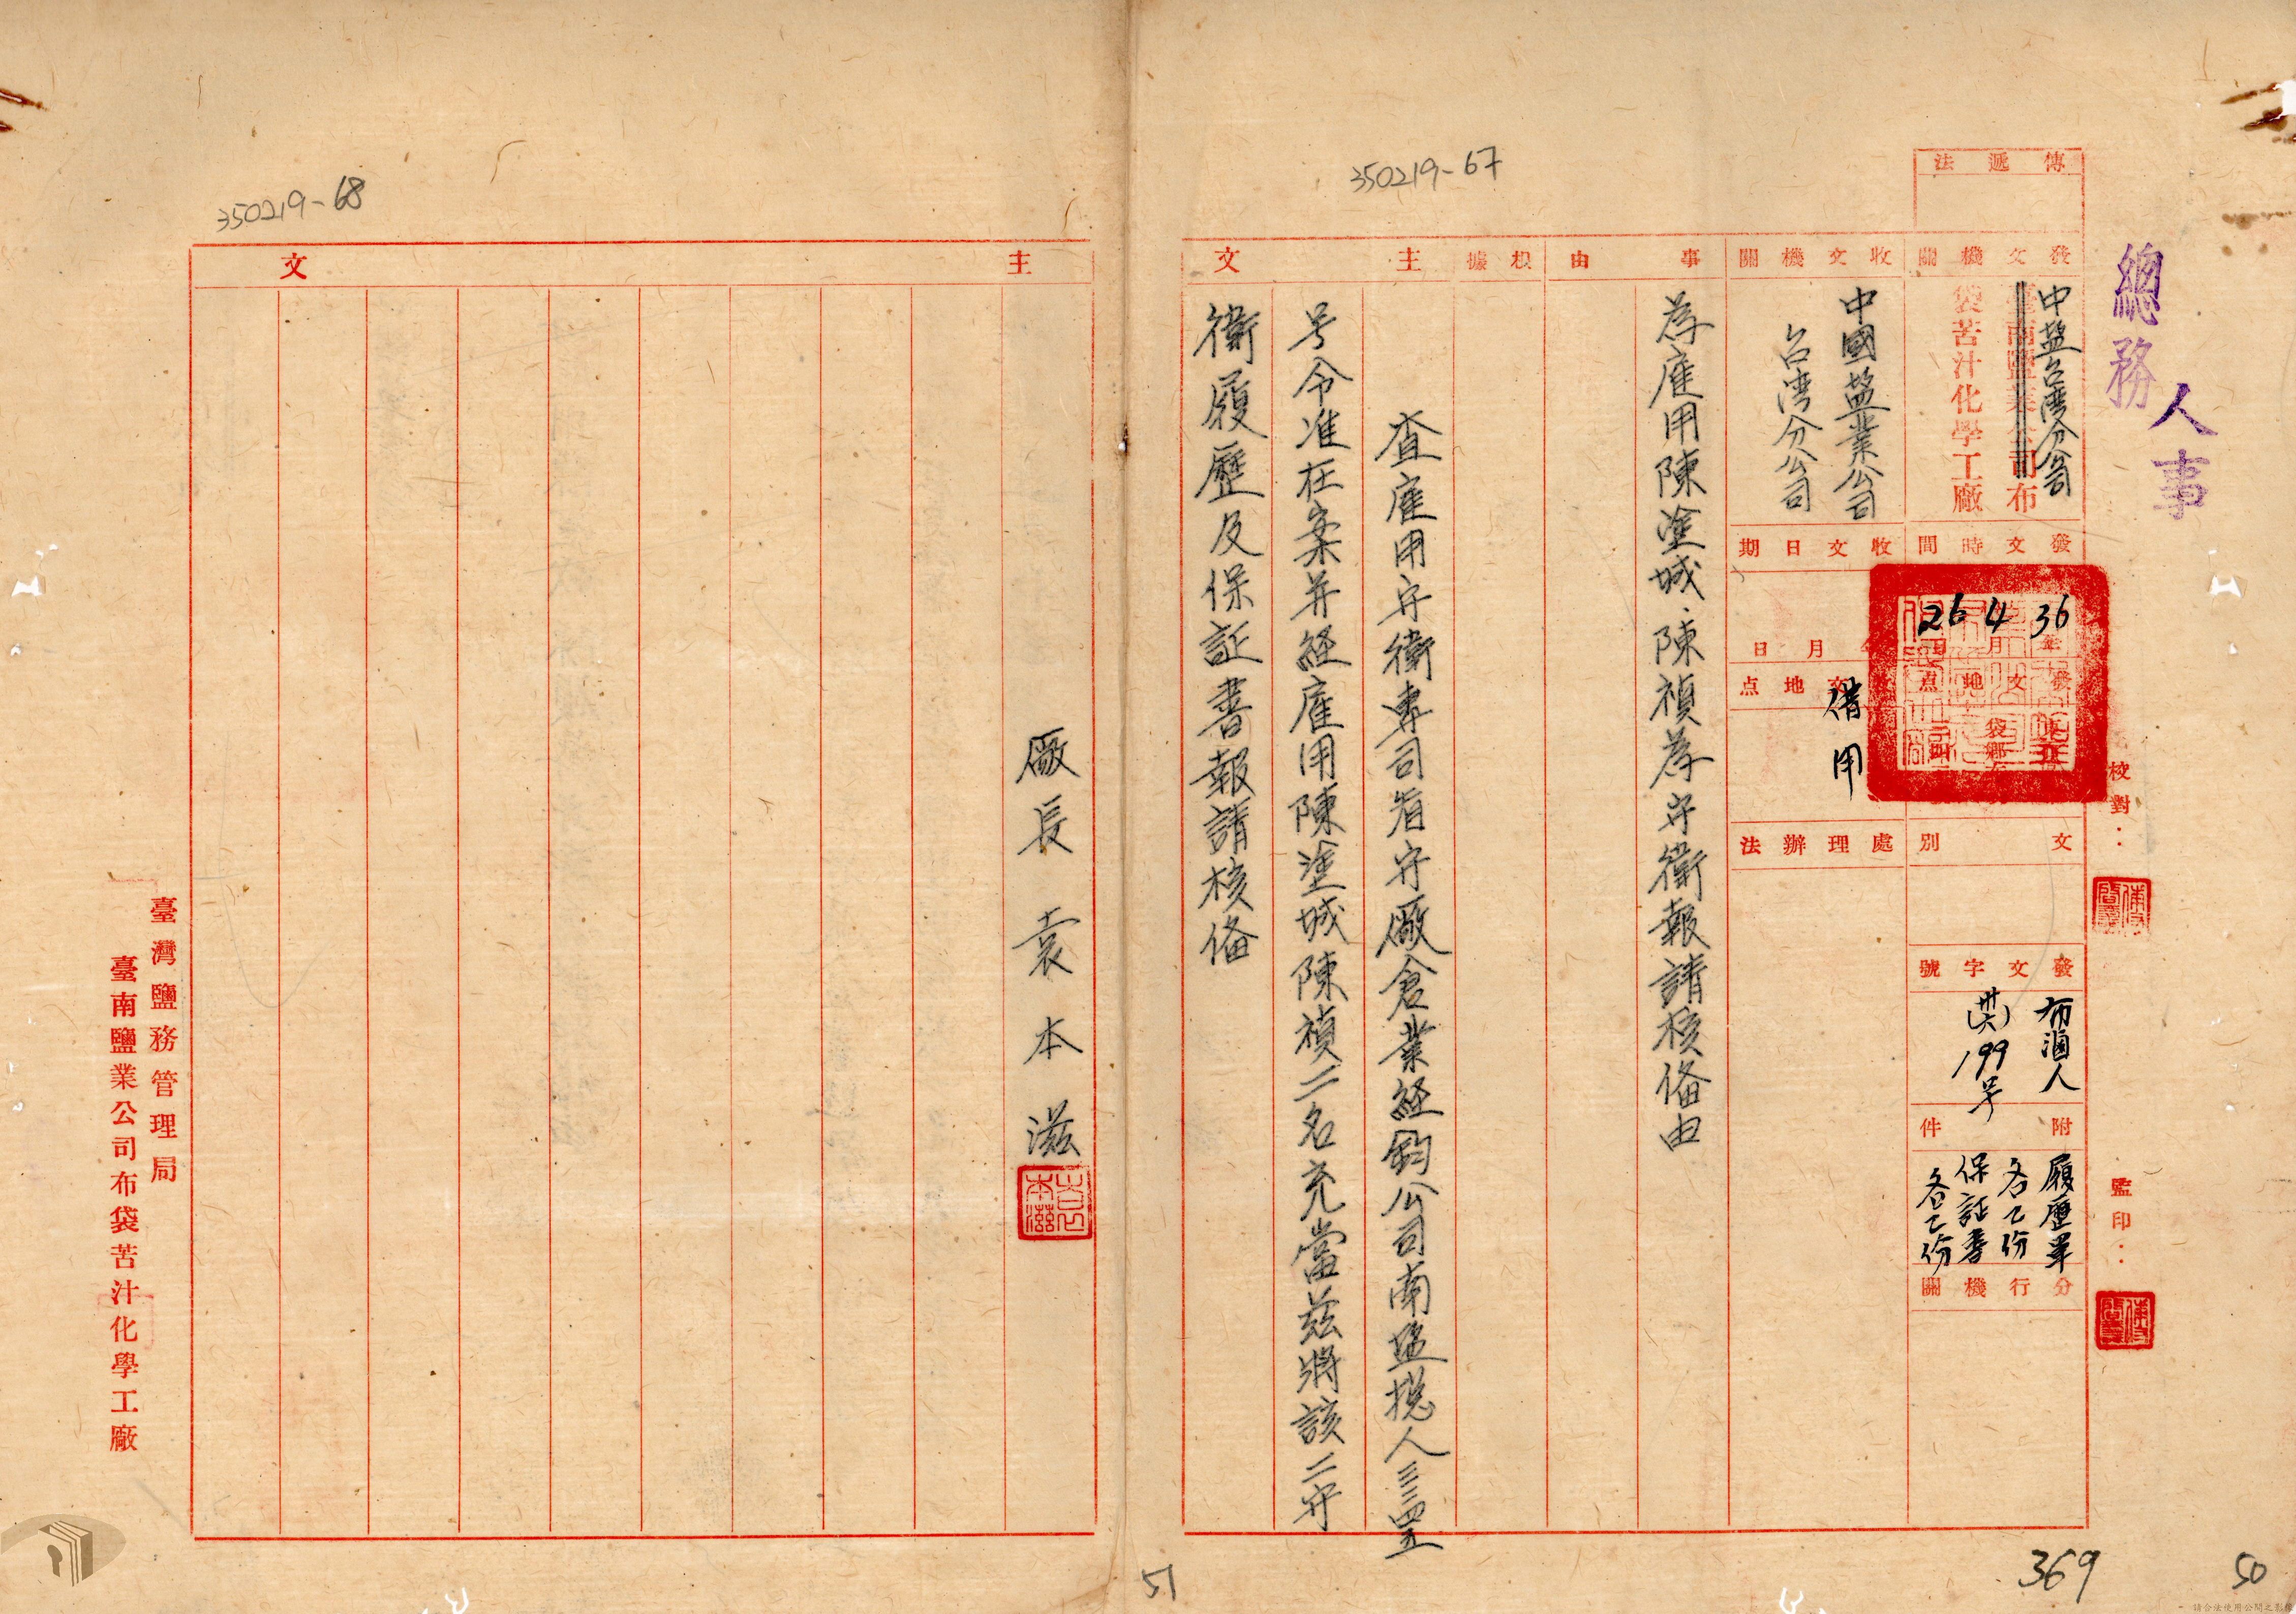 350219-67
總務
人事
傳遞法
發文機關
中塩台湾分公司
臺南鹽業公司布
袋苦汁化學工廠
發文時間
36年4月26日
發文地点
文別
發文字號
布滷人
(卅六)199号
附件
履歷單
各乙份
保証書
各乙份
分行機關
校對：
監印：
收文機關
中國塩業公司
台湾分公司
收文日期
月日
借用
處理辦法
事由
為雇用陳塗城.陳禎為守衛報請核俻由
根據
主文
查雇用守衛專司看守廠倉業経鈞公司南塩総人三三四五
号令准在案并経雇用陳塗城陳禎二名充當茲將該二守
衛履歷及保証書報請核俻
369
50
350219-68
主文
廠長袁本滋
臺灣鹽務管理局
臺南鹽業公司布袋苦汁化學工廠
51